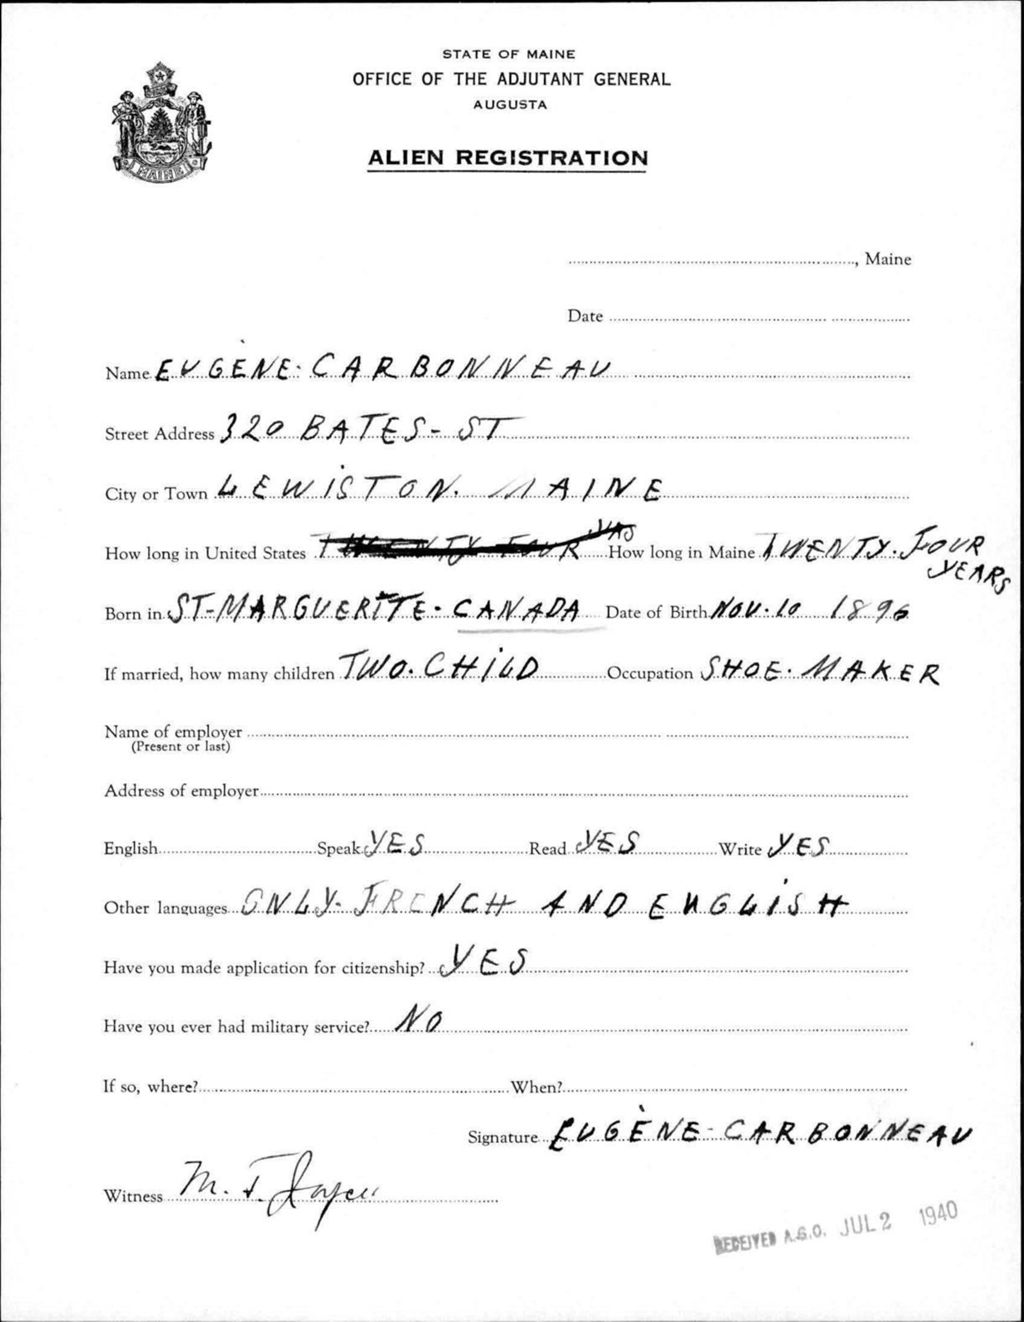 STATE OF MAINE
OFFICE OF THE ADJUTANT GENERAL
AUGUSTA
ALIEN REGISTRATION
MAINE
, Maine
Date
Name EUGÈNE-CARBONNEAU
Street Address 320 BATES-ST
City or Town LEWISTON. MAINE
How long in United States TWENTY FOUR YRS How long in Maine TWENTY-FOUR YEARS
Born in ST-MARGUERITE-CANADA Date of Birth NOV-10 1896
If married, how many children TWO-CHILD Occupation SHOE-MAKER
Name of employer
(Present or last)
Address of employer
English Speak YES Read YES Write YES
Other languages ONLY-FRENCH AND ENGLISH
Have you made application for citizenship? YES
Have you ever had military service? NO
If so, where? When?
Signature EUGÈNE-CARBONNEAU
Witness M. J. Joyce
RECEIVED A.G.O. JUL 2 1940